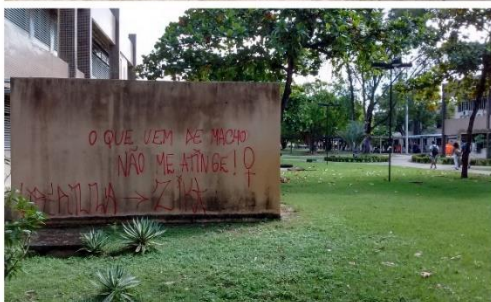 O QUE VEM DE MACHO
NÃO ME ATINGE! ♀